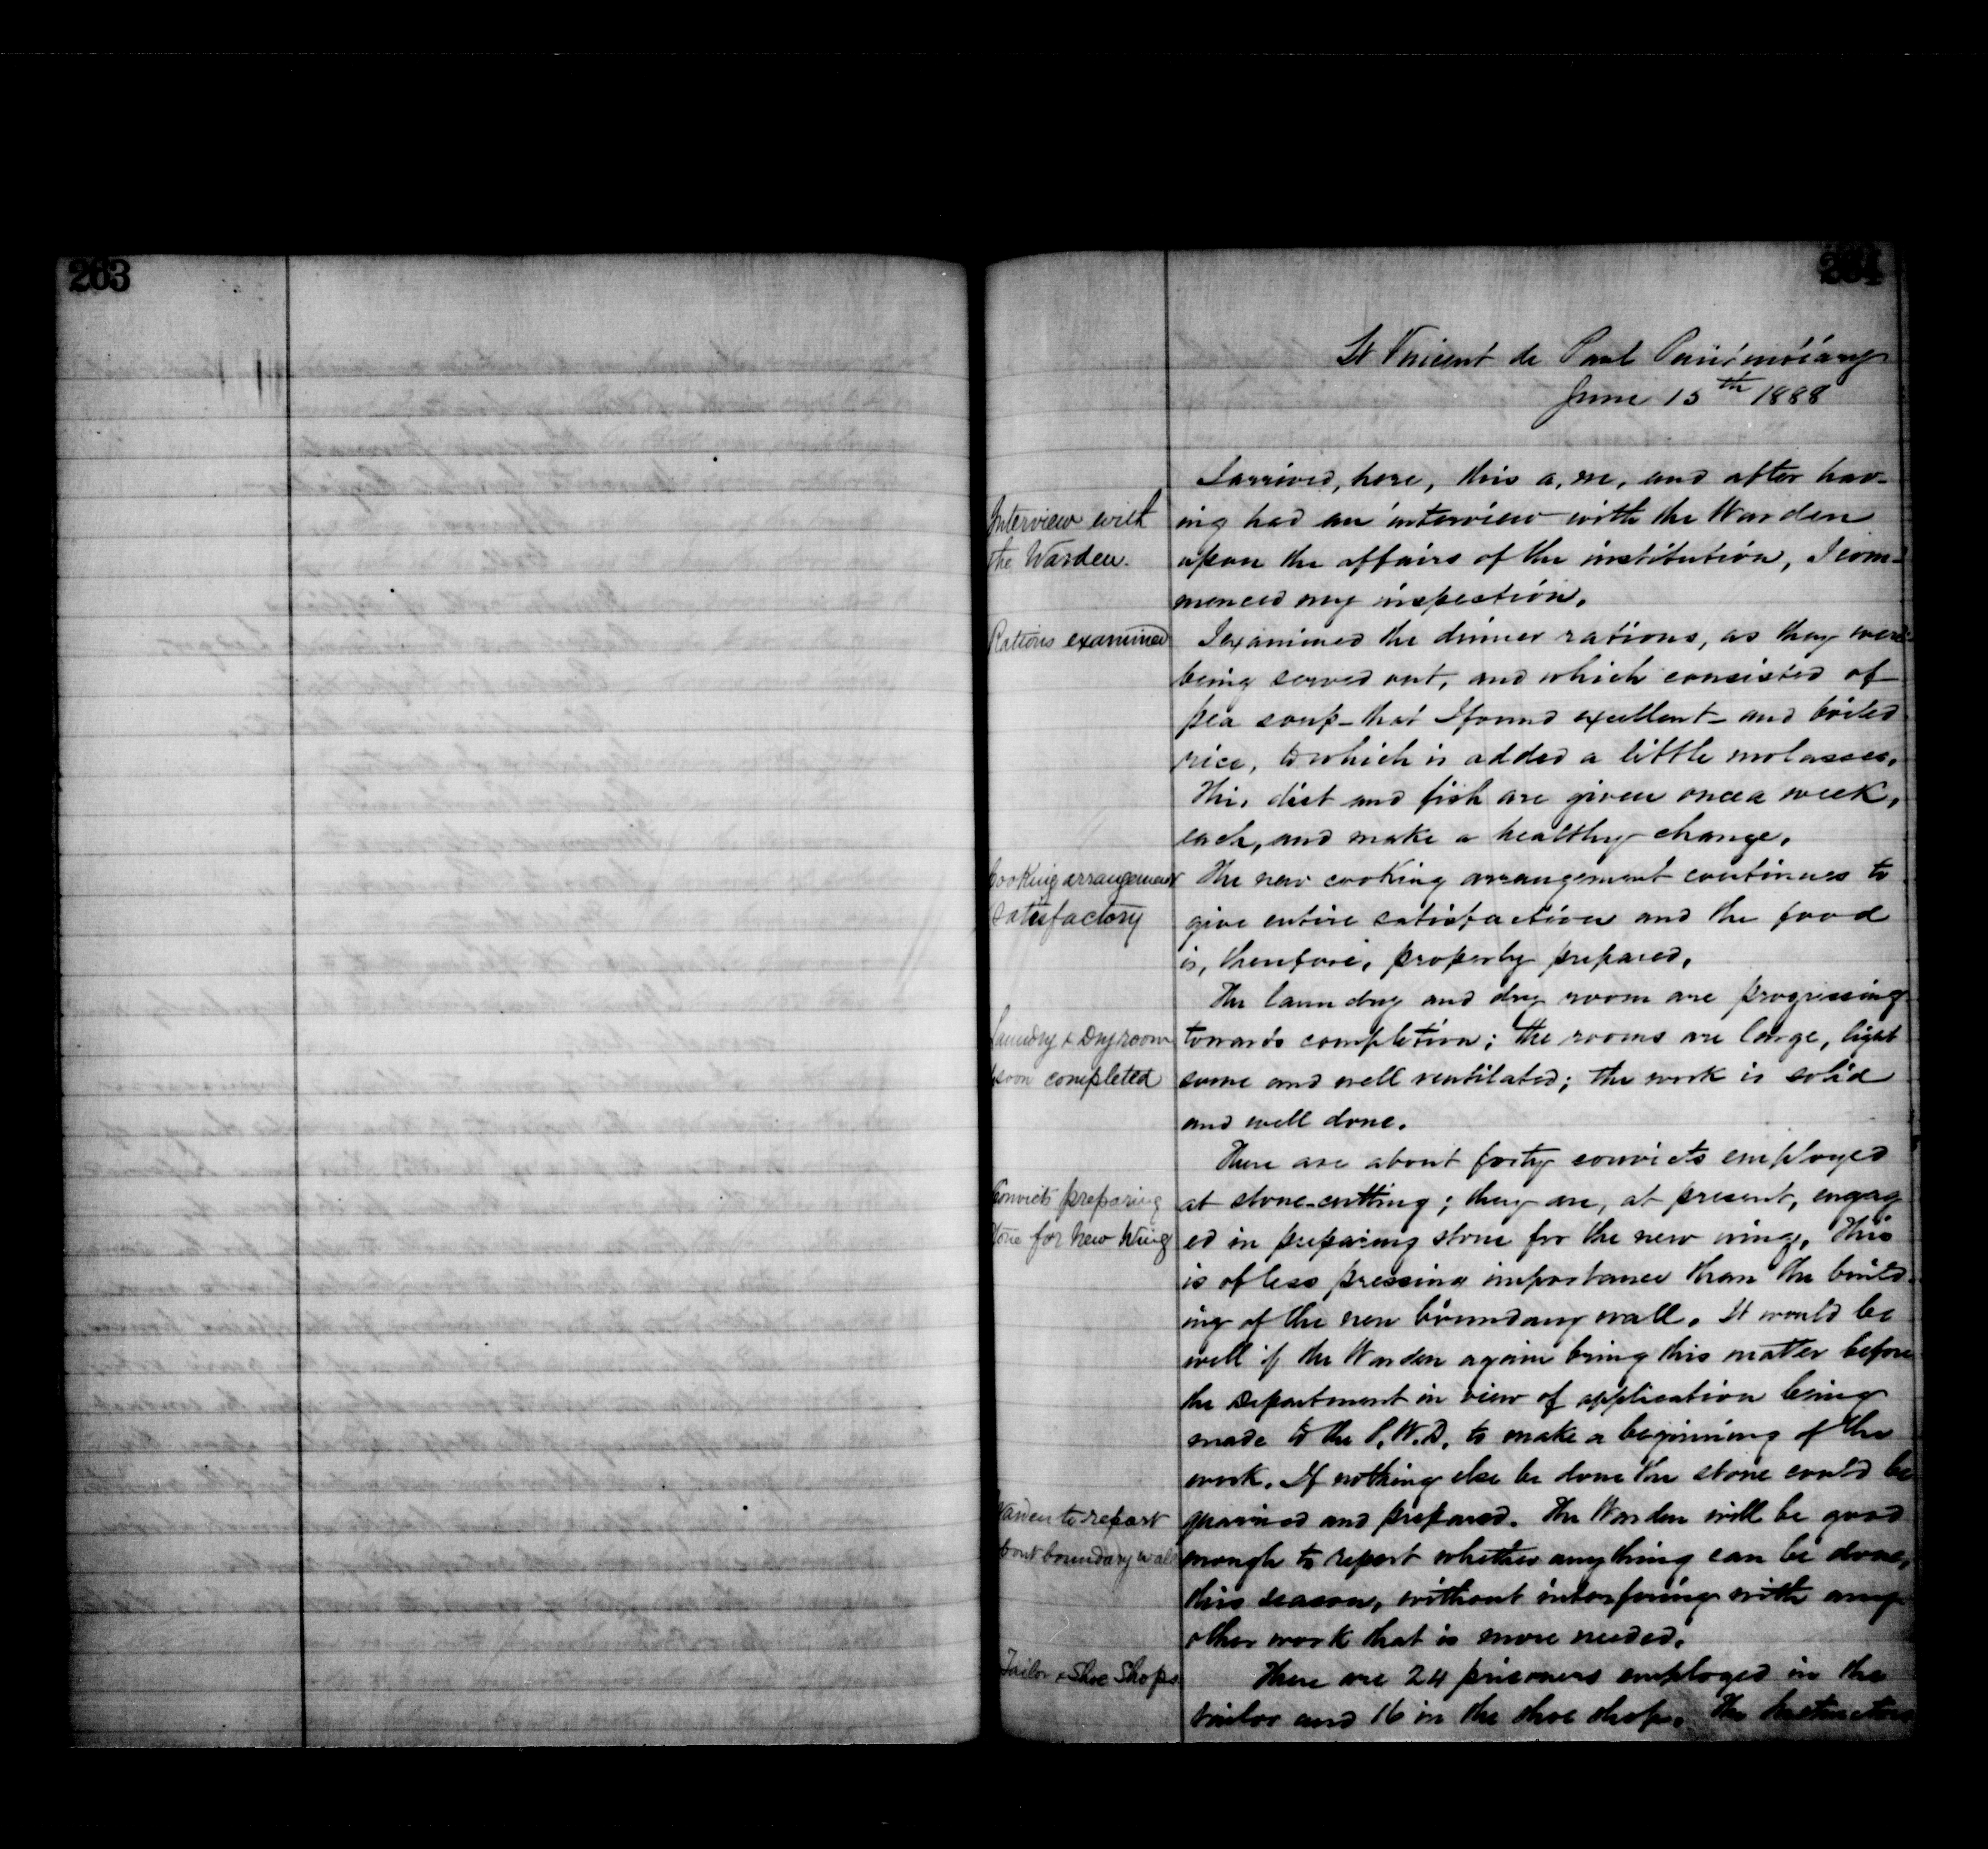 263
264
St Vincent de Paul Penitentiary
June 15th 1888
I arrived, here, this a.m, and after hav-
Interview with
the Warden.
ing had an interview with the Warden
upon the affairs of the institution, I com-
menced my inspection.
Rations examined
I examined the dinner rations, as they were
being served out, and which consisted of
pea soup - that I found excellent - and boiled
rice, to which is added a little molasses.
This diet and fish are given once a week,
each, and make a healthy change.
Cooking arrangement
satisfactory
The new cooking arrangement continues to
give entire satisfaction and the food
is, therefore, properly prepared.
The laundry and dry room are progressing
Laundry & Dry room
soon completed
towards completion; the rooms are large, light
some and well ventilated; the work is solid
and well done.
There are about forty convicts employed
Convicts preparing
stone for new Wing
at stone-cutting; they are, at present, engag
ed in preparing stone for the new wing. This
is of less pressing importance than the build-
ing of the new boundary wall. It would be
well if the Warden again bring this matter before
the Department in view of application being
made to the P.W.D. to make a beginning of the
work. If nothing else be done the stone could be
Warden to report
about boundary wall
quarried and prepared. The Warden will be good
enough to report whether anything can be done,
this season, without interfering with any
other work that is more needed.
Tailor & Shoe Shops
There are 24 prisoners employed in the
tailor and 16 in the shoe shop. The Instructors